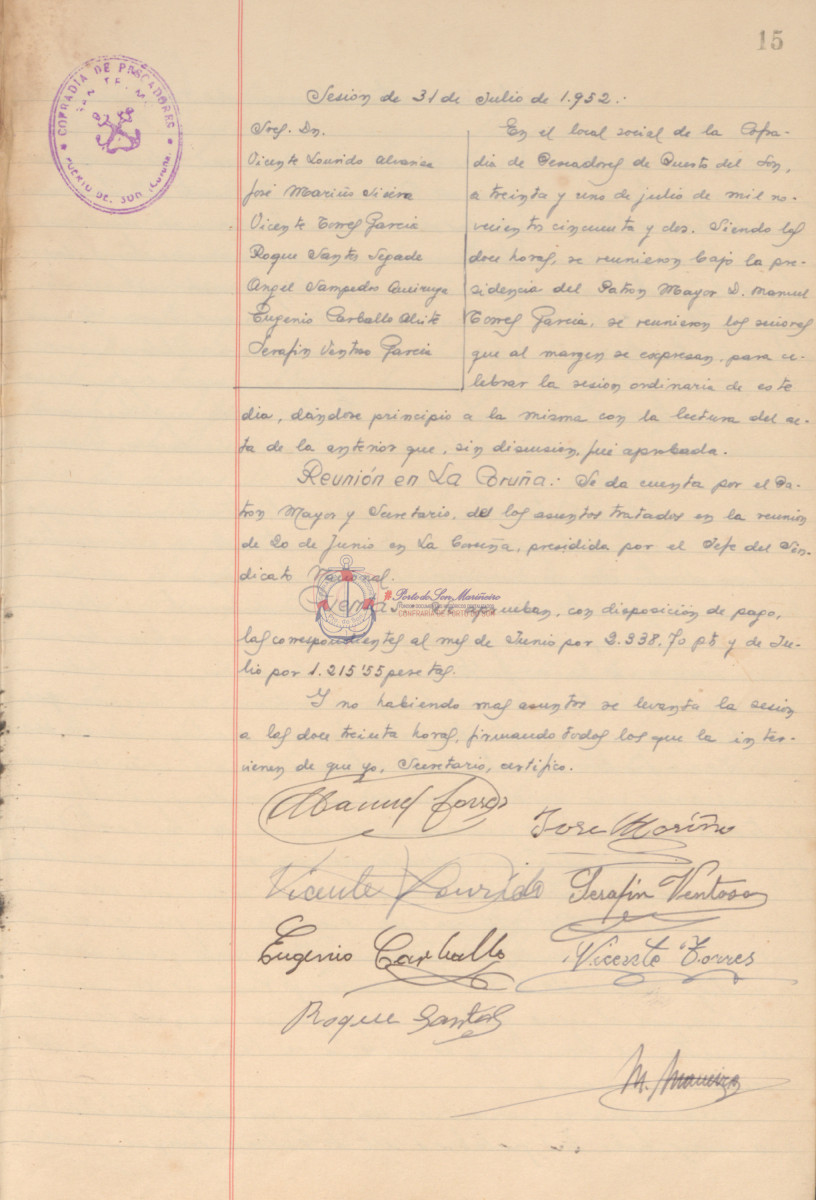 15
COFRADIA DE PESCADORES
SAN TELMO
PUERTO DEL SON (Coruña)
Sesion de 31 de Julio de 1.952.:
Sres. Dn.
Vicente Lourido Alvarez
José Mariño Sieira
Vicente Torres Garcia
Roque Santos Segade
Angel Sampedro Queiruga
Eugenio Carballo Alsite
Serafin Ventoso Garcia
En el local social de la Cofra-
dia de Pescadores de Puerto del Son,
a treinta y uno de julio de mil no-
vecientos cincuenta y dos. Siendo las
doce horas, se reunieron bajo la pre-
sidencia del Patron Mayor D. Manuel
Torres Garcia, se reunieron los señores
que al margen se expresan, para ce-
lebrar la sesion ordinaria de este
dia, dándose principio a la misma con la lectura del ac-
ta de la anterior que, sin discusion, fué aprobada.
Reunión en La Coruña.: Se da cuenta por el Pa-
tron Mayor y Secretario, de los asuntos tratados en la reunion
de 20 de Junio en La Coruña, presidida por el Jefe del Sin-
dicato Nacional.
Cuentas Se aprueban, con disposición de pago,
las correspondientes al mes de Junio por 2.338,70 pts y de Ju-
lio por 1.215'55 pesetas.
Porto do Son Mariñeiro
CONFRARÍA DE PORTO DO SON
Y no habiendo mas asuntos se levanta la sesion
a las doce treinta horas, firmando todos los que la inter-
vienen de que yo, Secretario, certifico.
Manuel Torres
Jose Mariño
Vicente Lourido
Serafin Ventoso
Eugenio Carballo
Vicente Torres
Roque Santos
M. Maneiro